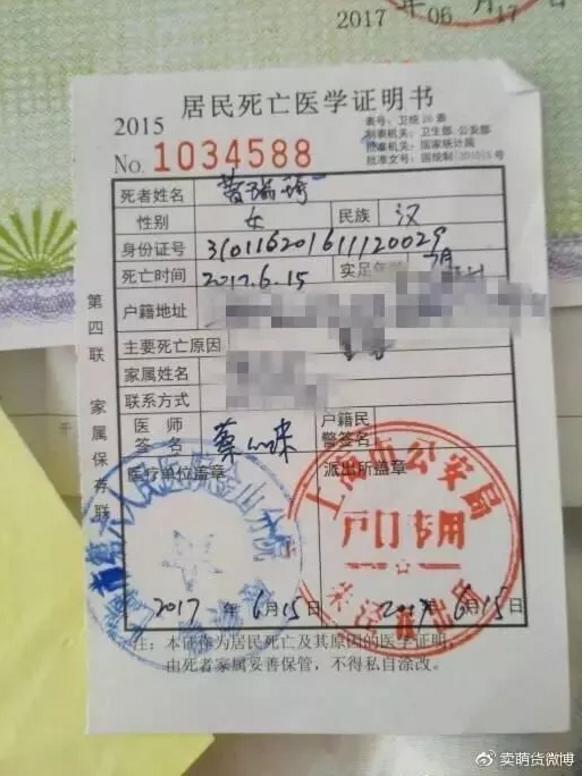 2017 年 06 月 17 日
居民死亡医学证明书
2015
表号:卫统26表
制表机关:卫生部、公安部
批准机关:国家统计局
批准文号:国统制(2010)5号
No. 1034588
死者姓名 瑞
性别 女 民族 汉
身份证号 310116201611120029
死亡时间 2017.6.15 实足年 7月
户籍地址
主要死亡原因
家属姓名
联系方式
医师签名 蔡 户籍民警签名
医疗单位盖章 派出所盖章
第六人民医院金山分院
上海市公安局
户口专用
朱泾派出所
2017 年 6月15日 2017年 6月15日
注:本证作为居民死亡及其原因的医学证明,
由死者家属妥善保管,不得私自涂改。
第四联 家属保存联
卖萌货微博